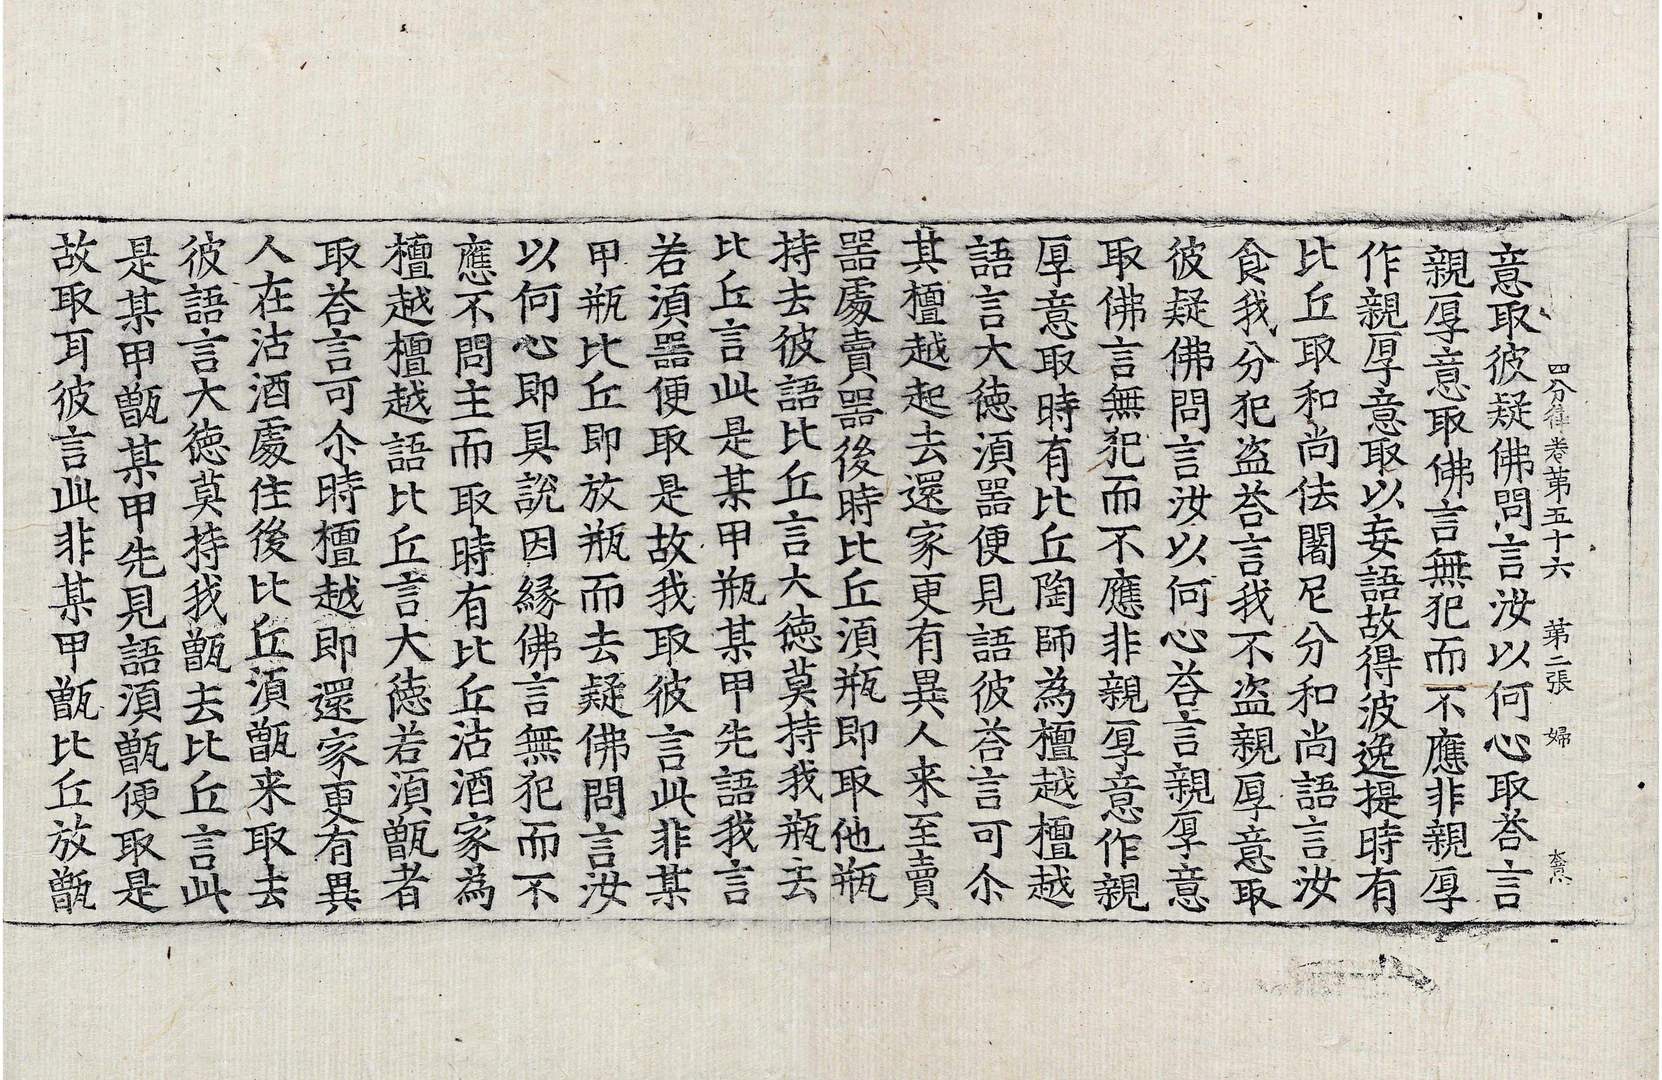 四分律卷第五十六 第二張 婦
意取彼疑佛問言汝以何心取荅言
親厚意取佛言無犯而不應非親厚
作親厚意取以妄語故得波逸提時有
比丘取和尚佉闍尼分和尚語言汝
食我分犯盜荅言我不盜親厚意取
彼疑佛問言汝以何心荅言親厚意
取佛言無犯而不應非親厚意作親
厚意取時有比丘陶師為檀越檀越
語言大德湏器便見語彼荅言可尒
其檀越起去還家更有異人来至賣
器處賣器後時比丘湏瓶即取他瓶
持去彼語比丘言大德莫持我瓶去
比丘言此是某甲瓶某甲先語我言
若湏器便取是故我取彼言此非某
甲瓶比丘即放瓶而去疑佛問言汝
以何心即具說因緣佛言無犯而不
應不問主而取時有比丘沽酒家為
檀越檀越語比丘言大德若湏甑者
取荅言可尒時檀越即還家更有異
人在沽酒處住後比丘湏甑来取去
彼語言大德莫持我甑去比丘言此
是某甲甑某甲先見語湏甑便取是
故取耳彼言此非某甲甑比丘放甑